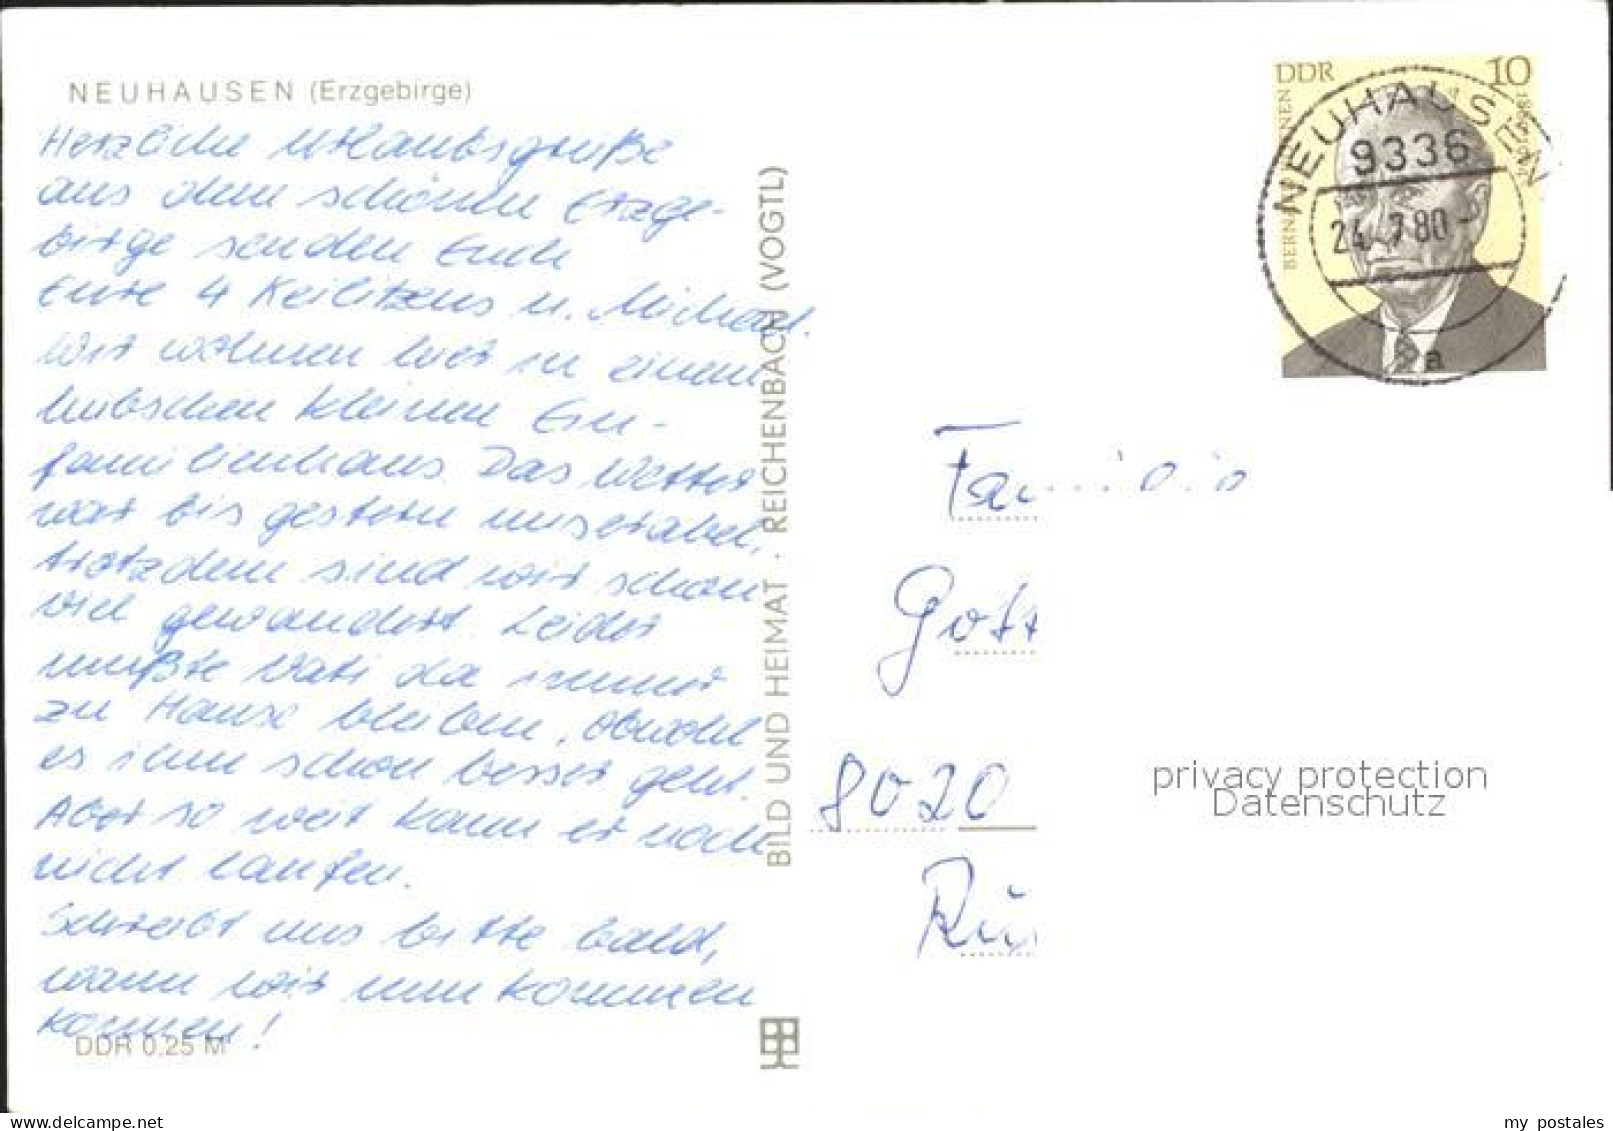 NEUHAUSEN (Erzgebirge)
Herzliche Urlaubsgrüße
aus dem schönen Erzge-
birge senden Euch
Eure 4 Keilitzens u. Michael.
Wir wohnen hier in einem
hübschen kleinen Ein-
familienhaus. Das Wetter
war bis gestern miserabel,
trotzdem sind wir schon
viel gewandert. Leider
mußte Vati da immer
zu Hause bleiben, obwohl
es ihm schon besser geht.
Aber so weit kann er noch
nicht laufen.
Schreibt uns bitte bald,
wann wir nun kommen
können!
DDR 0,25 M
BILD UND HEIMAT · REICHENBACH (VOGTL)
DDR 10
NEUHAUSEN
9336
24.7.80
a
Familie
Gott
8020
Rü
privacy protection
Datenschutz
www.delcampe.net
my_postales